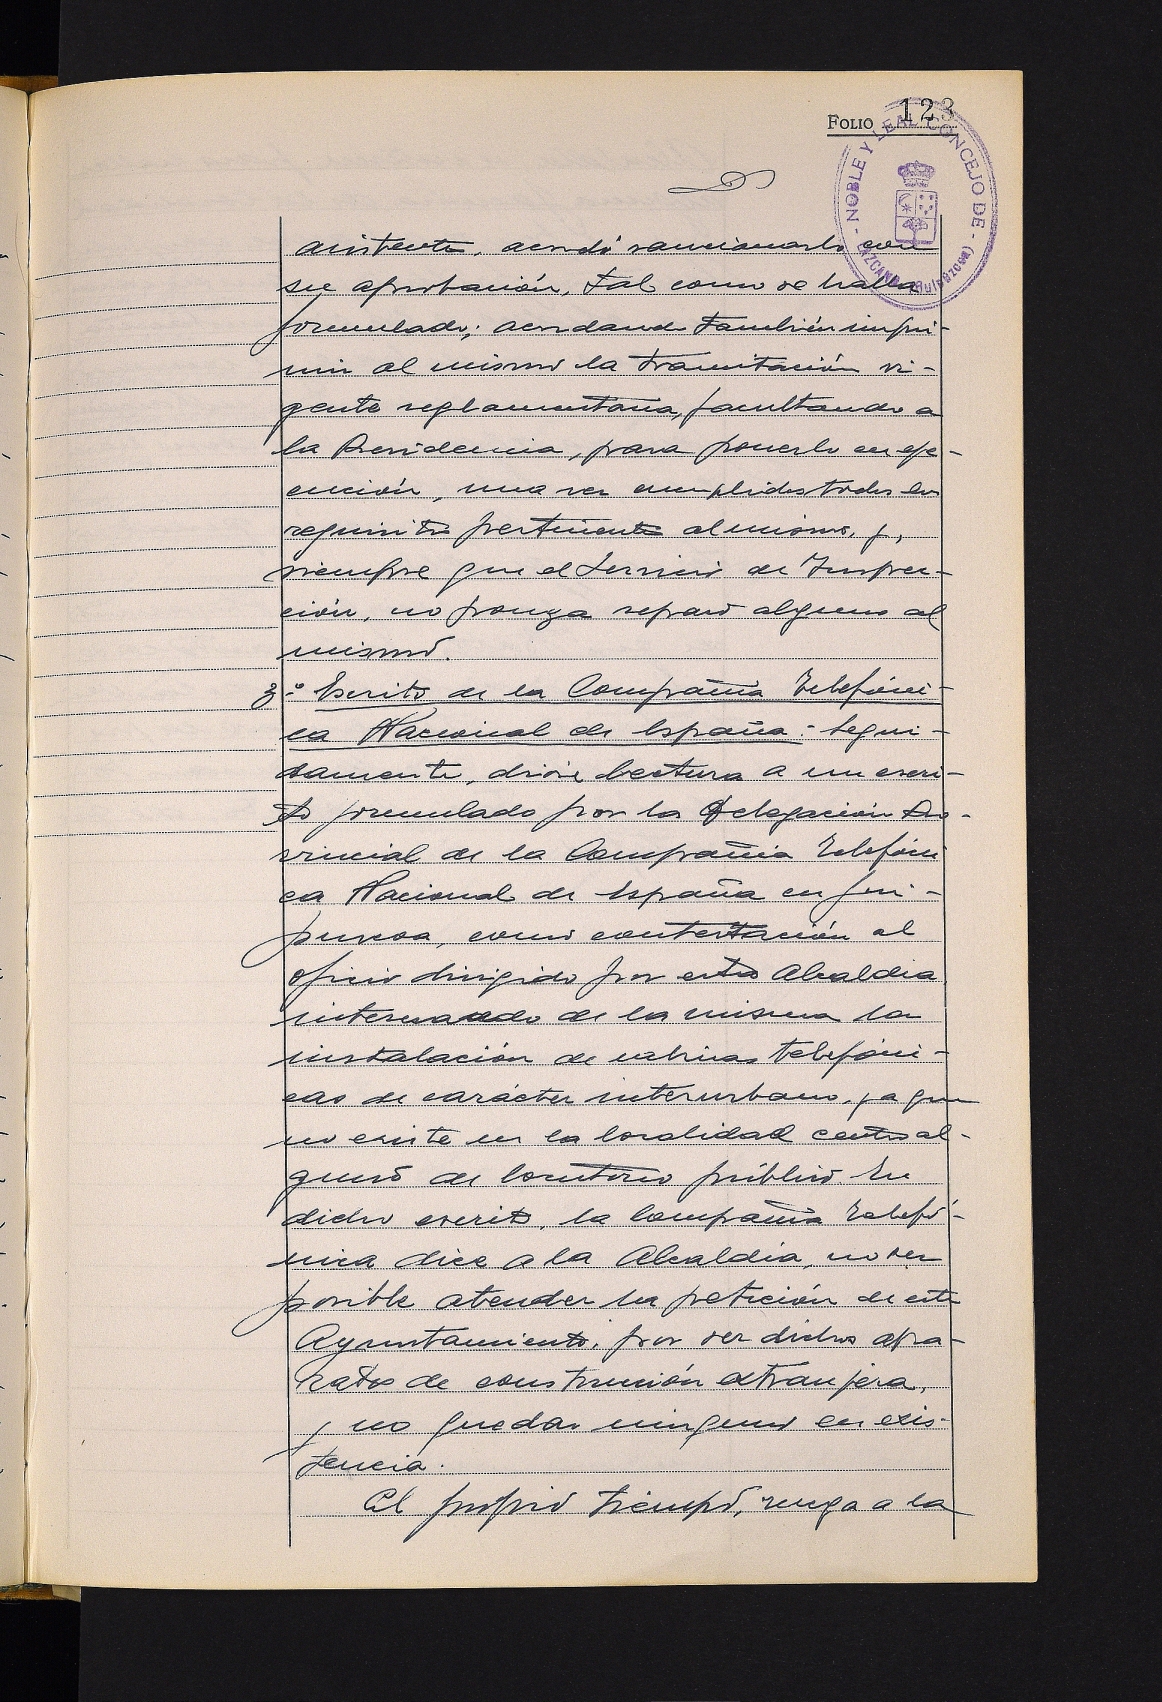 FOLIO 123
- NOBLE Y LEAL CONCEJO DE -
LAZCANO (Guipúzcoa)
asistente, acordó sancionarlo con
su aprobación, tal como se halla
formulado; acordando también impri-
mir al mismo la tramitación vi-
gente reglamentaria, facultando a
la Presidencia, para ponerlo en eje-
cución, una vez cumplidos todos los
requisitos pertinentes al mismo, y,
siempre que el Servicio de Inspec-
ción, no ponga reparo alguno al
mismo.
3º- Escrito de la Compañia Telefóni-
ca Nacional de España:- Segui-
damente, dióse lectura a un escri-
to formulado por la Delegación Pro-
vincial de la Compañia Telefóni
ca Nacional de España en Gui-
puzcoa, como contestación al
oficio dirigido por esta Alcaldia
interesando de la misma la
instalación de cabinas telefóni-
cas de carácter interurbano, ya que
no existe en la localidad centro al-
guno de locutorio público. En
dicho escrito, la Compañia Telefó-
nica dice a la Alcaldia, no ser
posible atender la petición de este
Ayuntamiento, por ser dichos apa-
ratos de construcción extranjera,
y no quedar ninguno en exis-
tencia.
Al propio tiempo, ruega a la